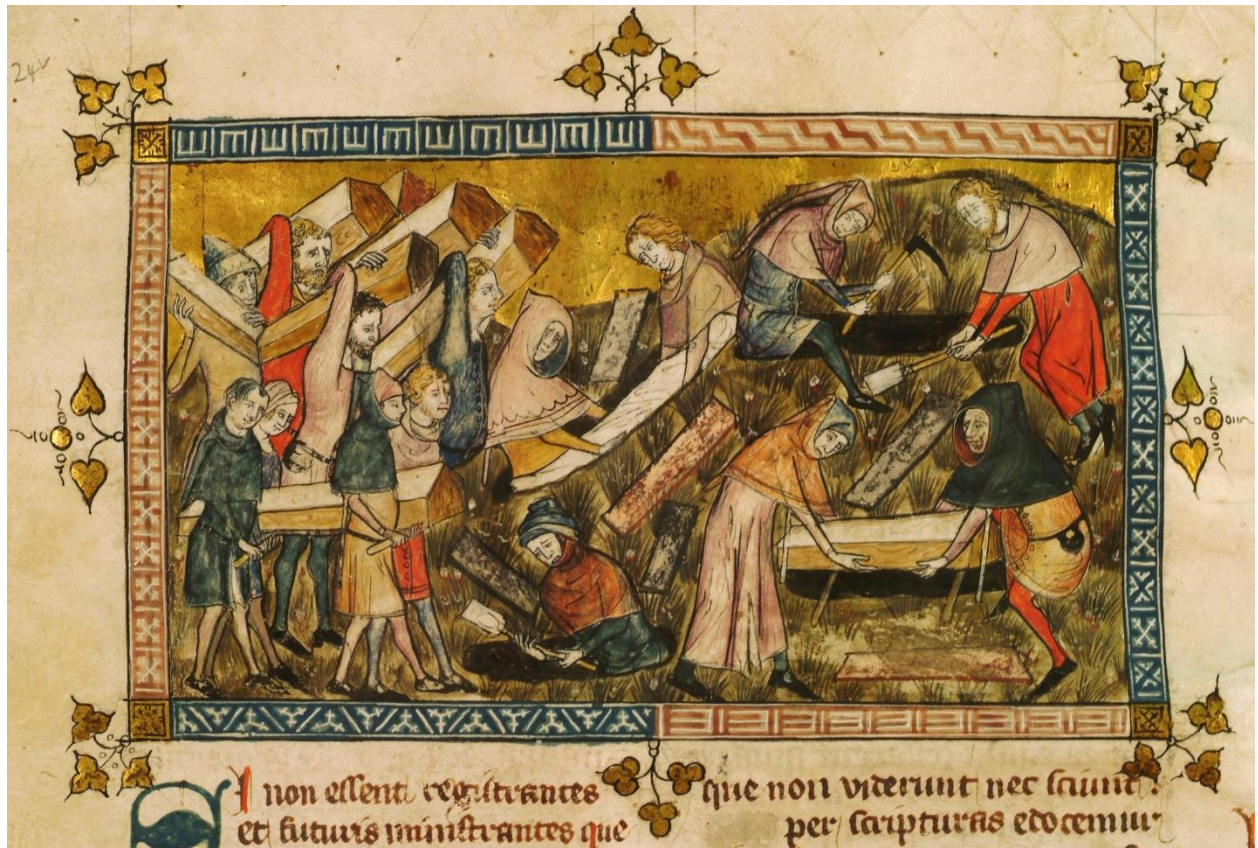 24v
SI non essent registrantes
et futuris ministrantes que
que non viderunt nec sciunt.
per scripturas edocemur